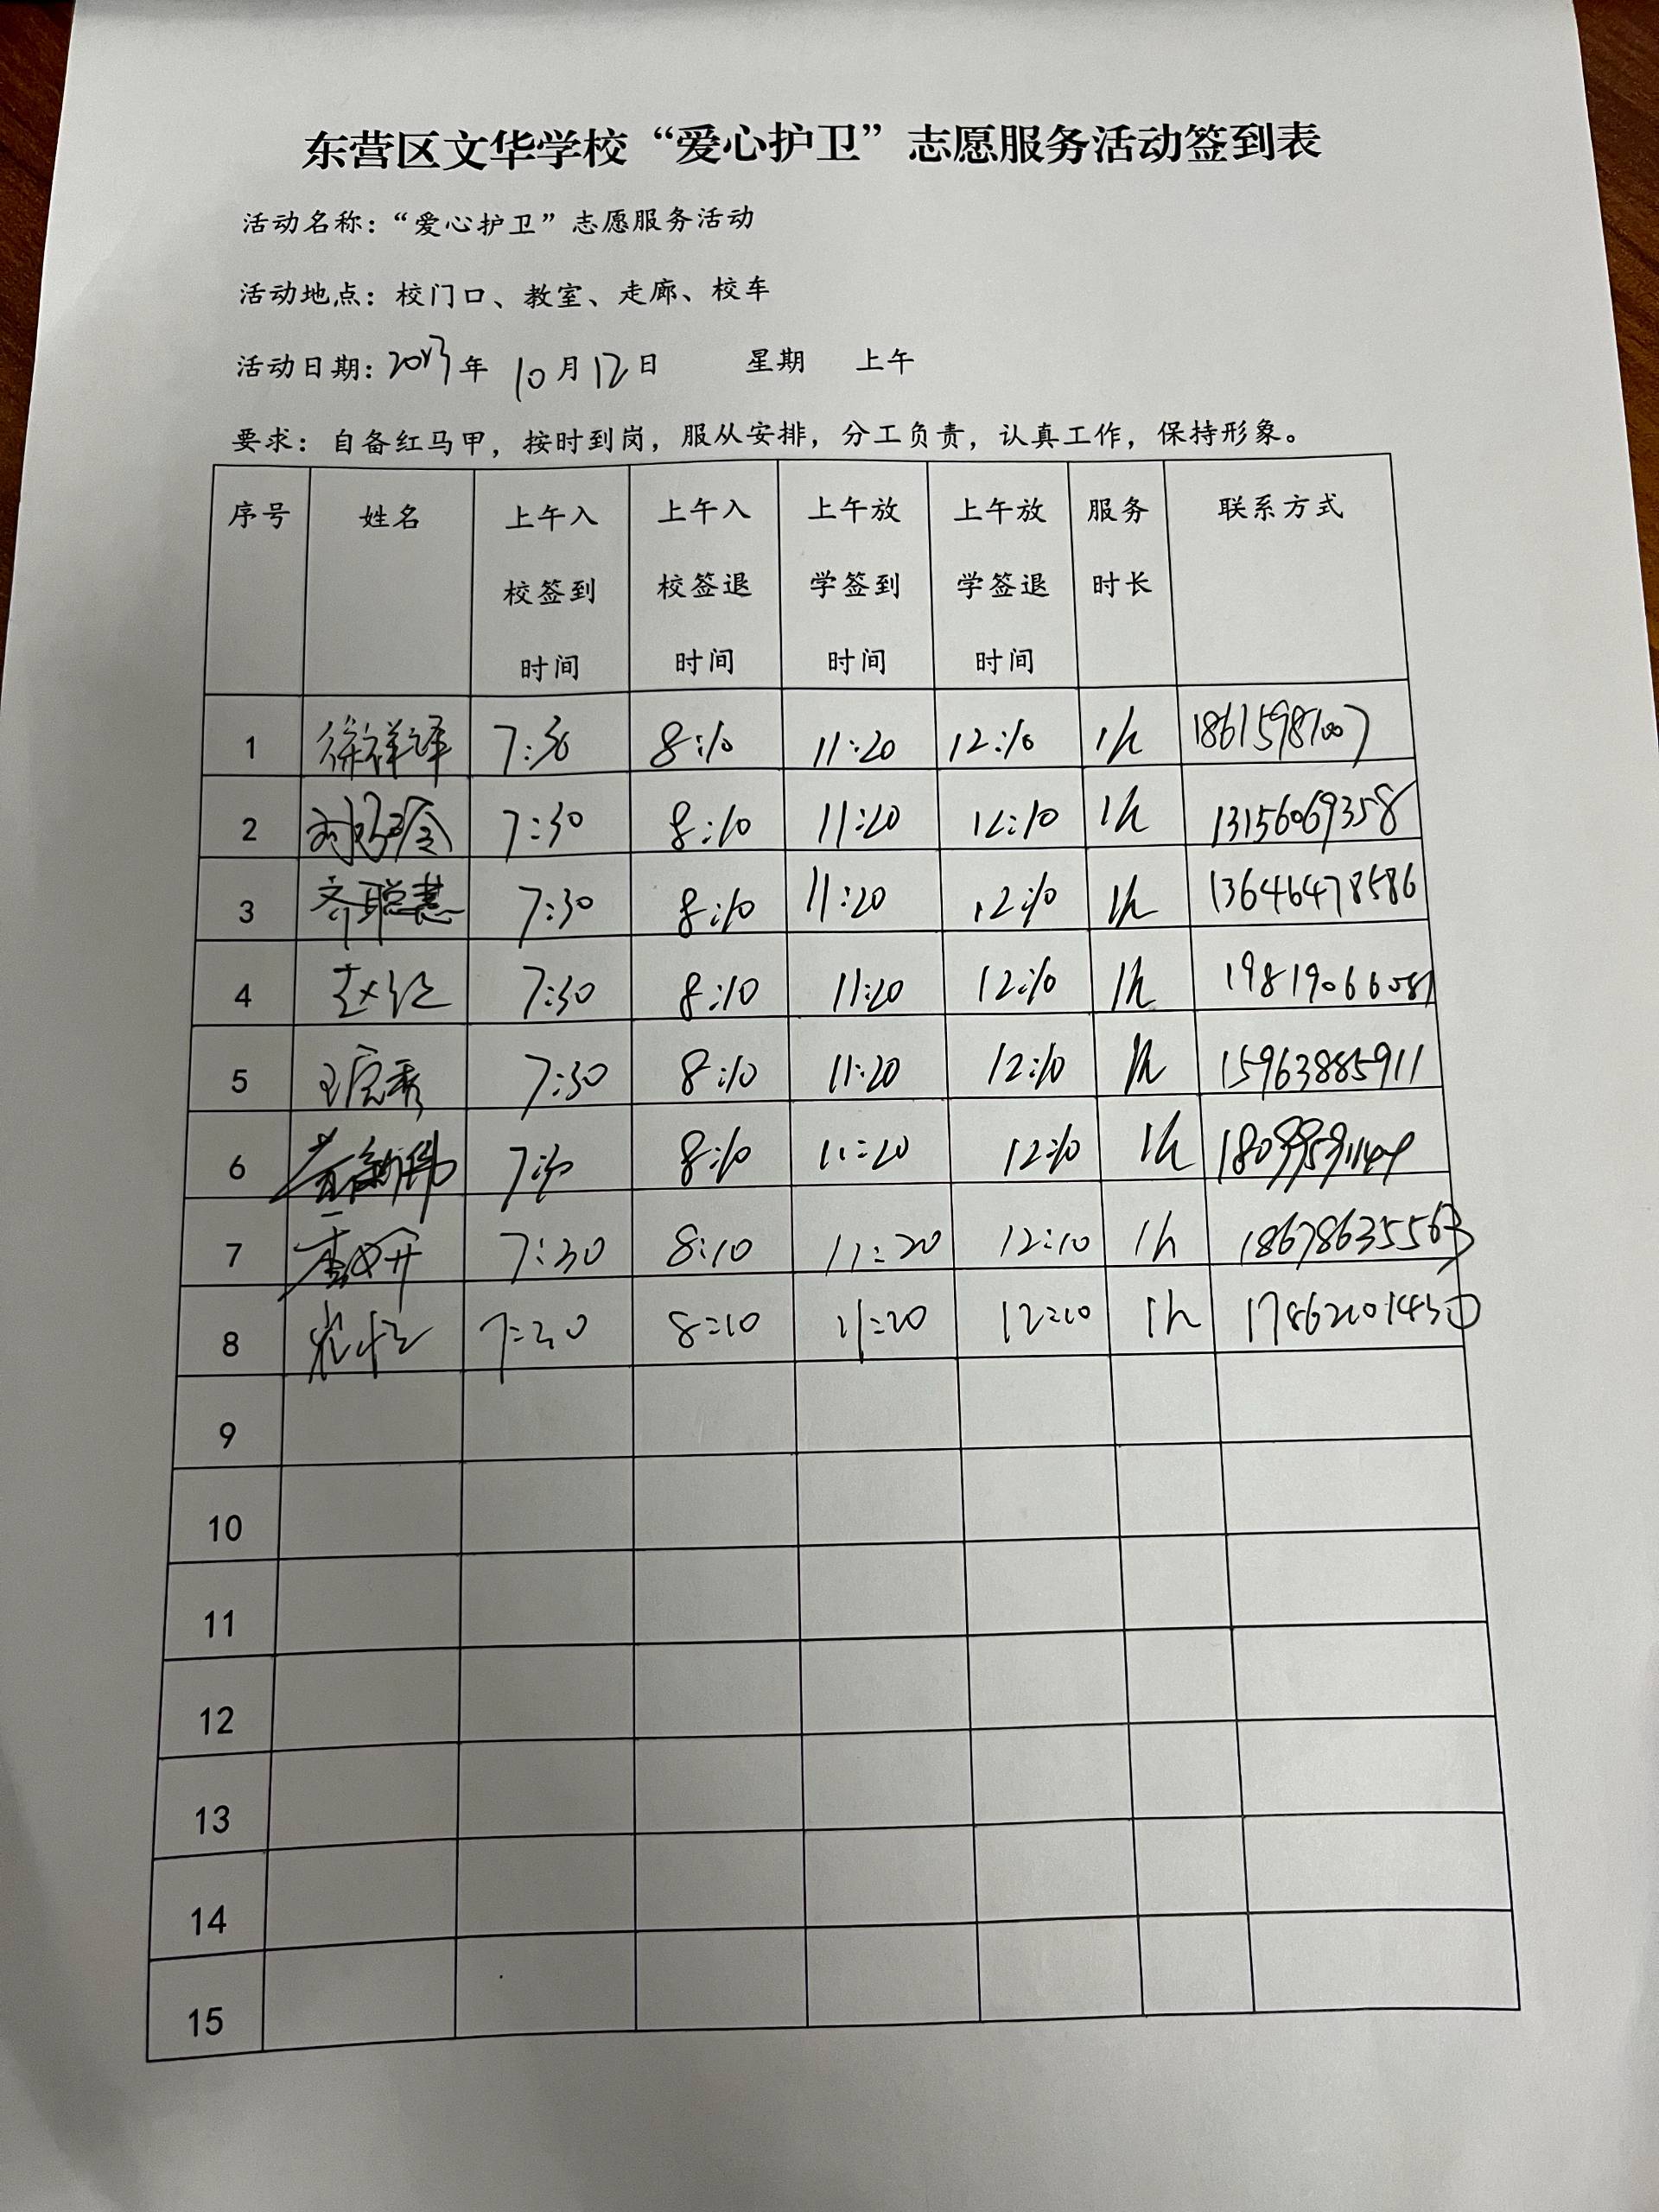 东营区文华学校“爱心护卫”志愿服务活动签到表
活动名称：“爱心护卫”志愿服务活动
活动地点：校门口、教室、走廊、校车
活动日期：2023年 10月12日 星期 上午
要求：自备红马甲，按时到岗，服从安排，分工负责，认真工作，保持形象。
序号 姓名 上午入校签到时间 上午入校签退时间 上午放学签到时间 上午放学签退时间 服务时长 联系方式
1 徐祥译 7:30 8:10 11:20 12:10 1h
2 7:30 8:10 11:20 12:10 1h 13156069358
3 齐聪慧 7:30 8:10 11:20 12:10 1h 13646478586
4 赵红 7:30 8:10 11:20 12:10 1h
5 7:30 8:10 11:20 12:10 1h 15963885911
6 7:30 8:10 11:20 12:10 1h
7 7:30 8:10 11:20 12:10 1h 18678635563
8 7:30 8:10 11:20 12:10 1h
9
10
11
12
13
14
15